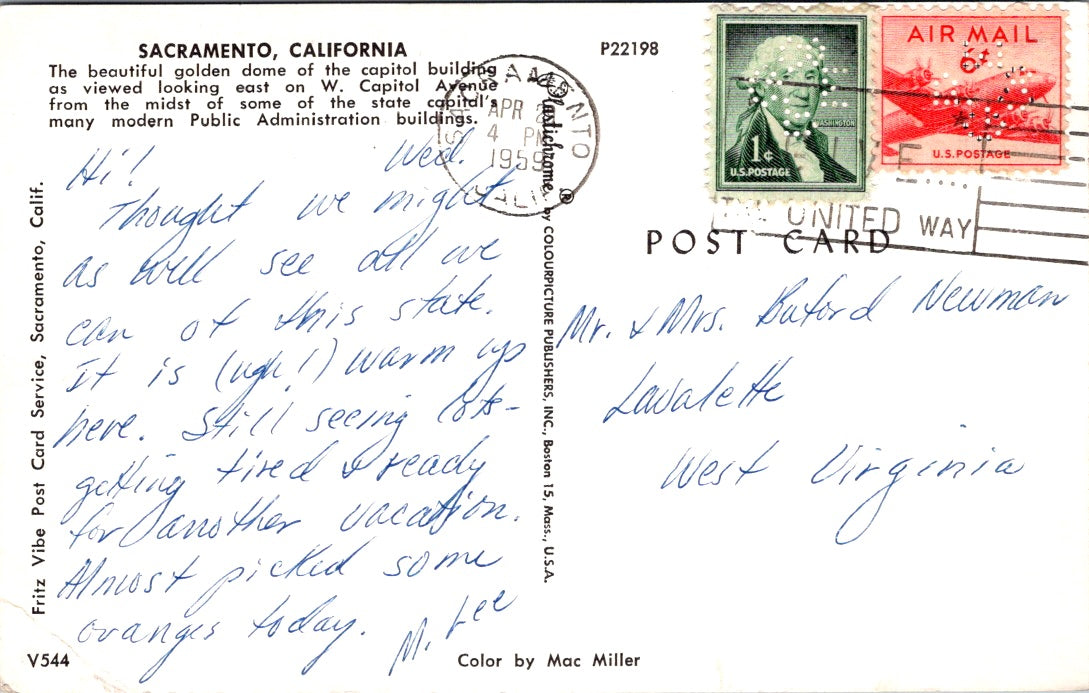 SACRAMENTO, CALIFORNIA
The beautiful golden dome of the capitol building
as viewed looking east on W. Capitol Avenue
from the midst of some of the state capital's
many modern Public Administration buildings.
P22198
SACRAMENTO
APR
4 PM
1959
CALIF.
WASHINGTON
1¢
U.S. POSTAGE
AIR MAIL
6¢
U.S. POSTAGE
THE UNITED WAY
POST CARD
Wed.
Hi!
Thought we might
as well see all we
can of this state.
It is (ugh!) warm up
here. Still seeing lots-
getting tired & ready
for another vacation.
Almost picked some
oranges today.
M. Lee
Mr. & Mrs. Buford Newman
Lavalette
West Virginia
Fritz Vibe Post Card Service, Sacramento, Calif.
Plastichrome ® by COLOURPICTURE PUBLISHERS, INC., Boston 15, Mass., U.S.A.
V544
Color by Mac Miller